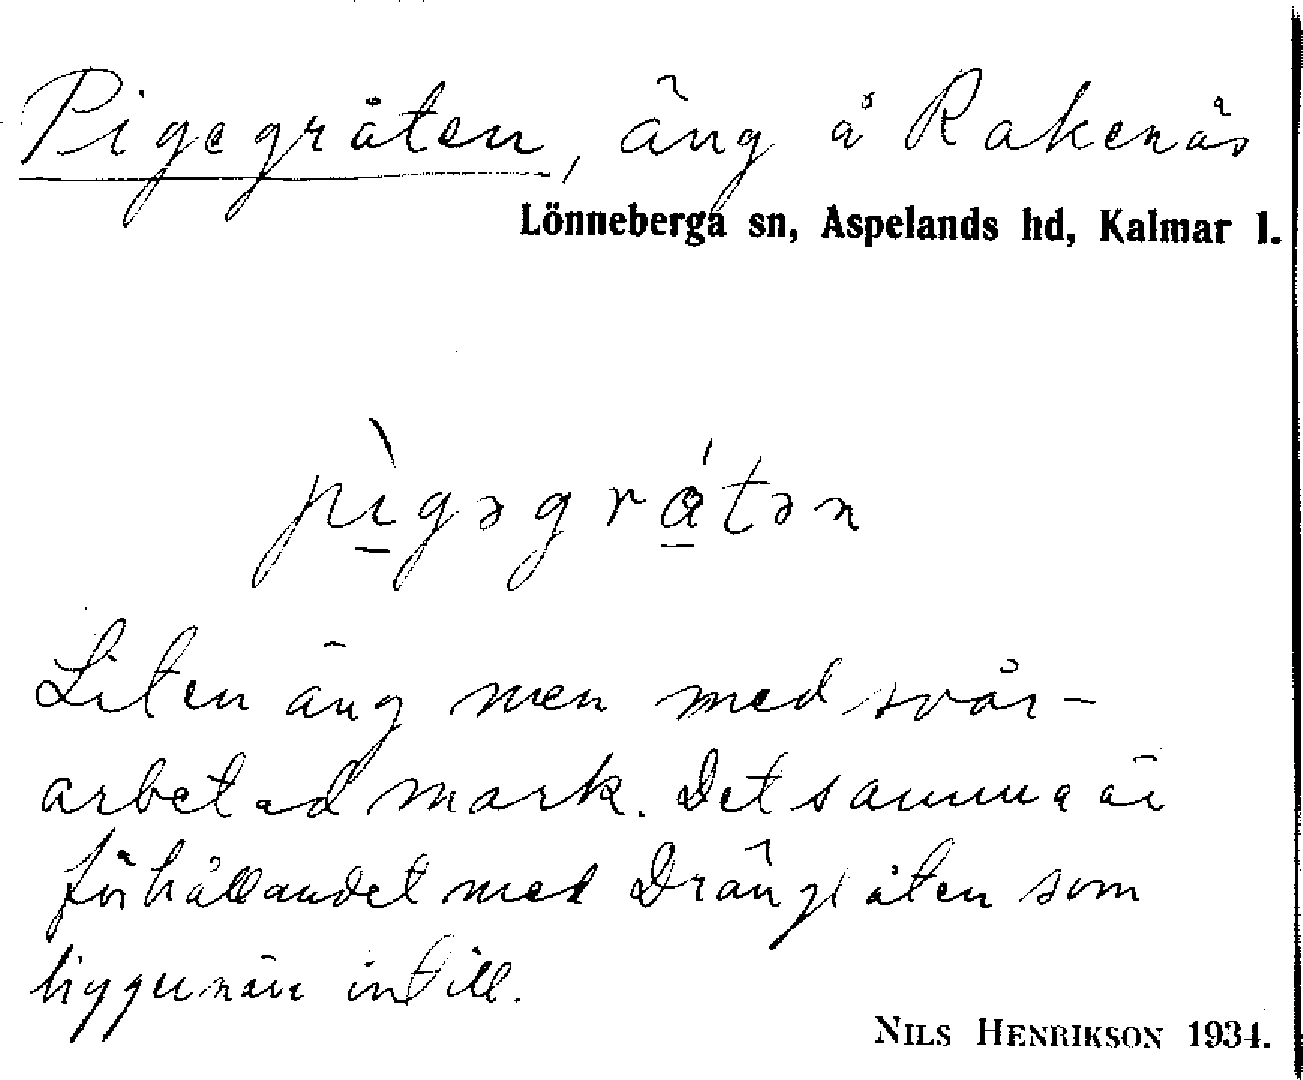 Pigegråten, äng å Rakenäs
Lönneberga sn, Aspelands hd, Kalmar l.
pìgəgrátən
Liten äng men med svår-
arbetad mark. Det samma är
förhållandet med Drängråten som
ligger nära intill.
NILS HENRIKSON 1934.